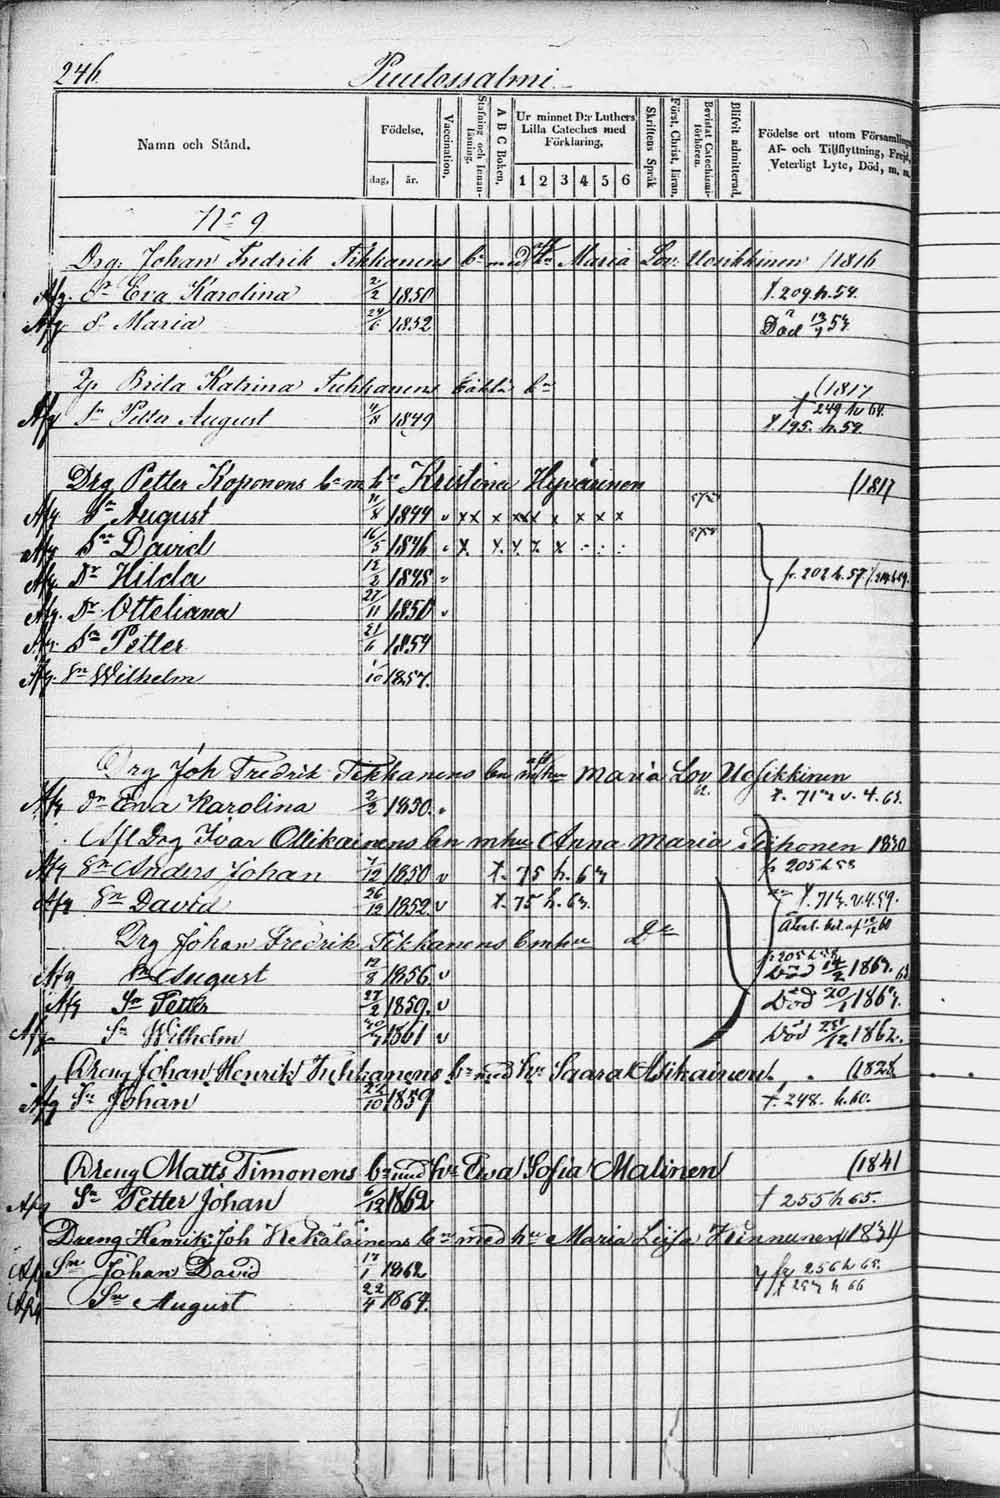 246.
Puutossalmi
Namn och Stånd.
Födelse.
dag.
år.
Vaccination.
Stafning och Innan-läsning.
A B C Boken.
Ur minnet D:r Luthers Lilla Cateches med Förklaring.
1 2 3 4 5 6
Skriftens Språk
Först. Christ. läran.
Bevistat Catechismi-förhören.
Blifvit admitterad.
Födelse ort utom Församlingen
Af- och Tillflyttning, Frejd,
Veterligt Lyte, Död, m. m.
No 9
Drg. Johan Fredrik Tikkanens bn med hu Maria Lov. /1816
Afg. Dr Eva Karolina 2/2 1850 f. 209. h. 54.
Afg Dr Maria 24/6 1852 Död 53
Brita Katrina Tikkanens oäkta bn (1817
f 249 h 64.
Afg Sn Petter August 4/8 1849 f. 195. h. 59.
Drg Petter Koponens bn m. hu Kristina Hyvärinen (1817
Afg Sn August 11/8 1844 v x x x x x x x x x
Afg Sn David 16/5 1846
Afg. Dr Hilda 12/2 1848 fr. 202 h. 57
Afg. Dr Otteliana 27/11 1850 v
Afg. Sn Petter 21/6 1854
Afg. Sn Wilhelm 1/10 1857.
Drg Joh Fredrik Tikkanens bn m hu Maria Lov
Afg dr Eva Karolina 2/2 1850. f. 71 v. 4. 63.
Afl Drg Ivar Ollikainens bn m hu Anna Maria Tiihonen 1830
Afg Sn Anders Johan 7/12 1850 v f. 75 h. 63 fr 205 h 58
Afg Sn David 26/12 1852 v f. 75 h. 63. f. 713. v. 4. 59.
Drg Johan Fredrik Tikkanens bn m hu Do
fr 205 h 58
Afg Sn August 12/8 1856 v Död 14/2 1863.
Afg Sn Petter 27/2 1859. v Död 20/1 1863.
Afg Sn Wilhelm 1861 v Död 1862.
Dreng Johan Henrik Tikkanens bn med hu Saara Asikainen. (1828
Afg Sn Johan 1859 f. 248. h. 60.
Dreng Matts Timonens bn med hu Ewa Sofia Malinen (1841
Afg Sn Petter Johan 6/12 1862 f 255 h 65.
Dreng Henrik Joh Kekäläinens bn med hu Maria Liisa Kinnunen (1834)
Afg Sn Johan David 17/1 1862 256 h 65.
Afg Sn August 22/4 1864. h 66